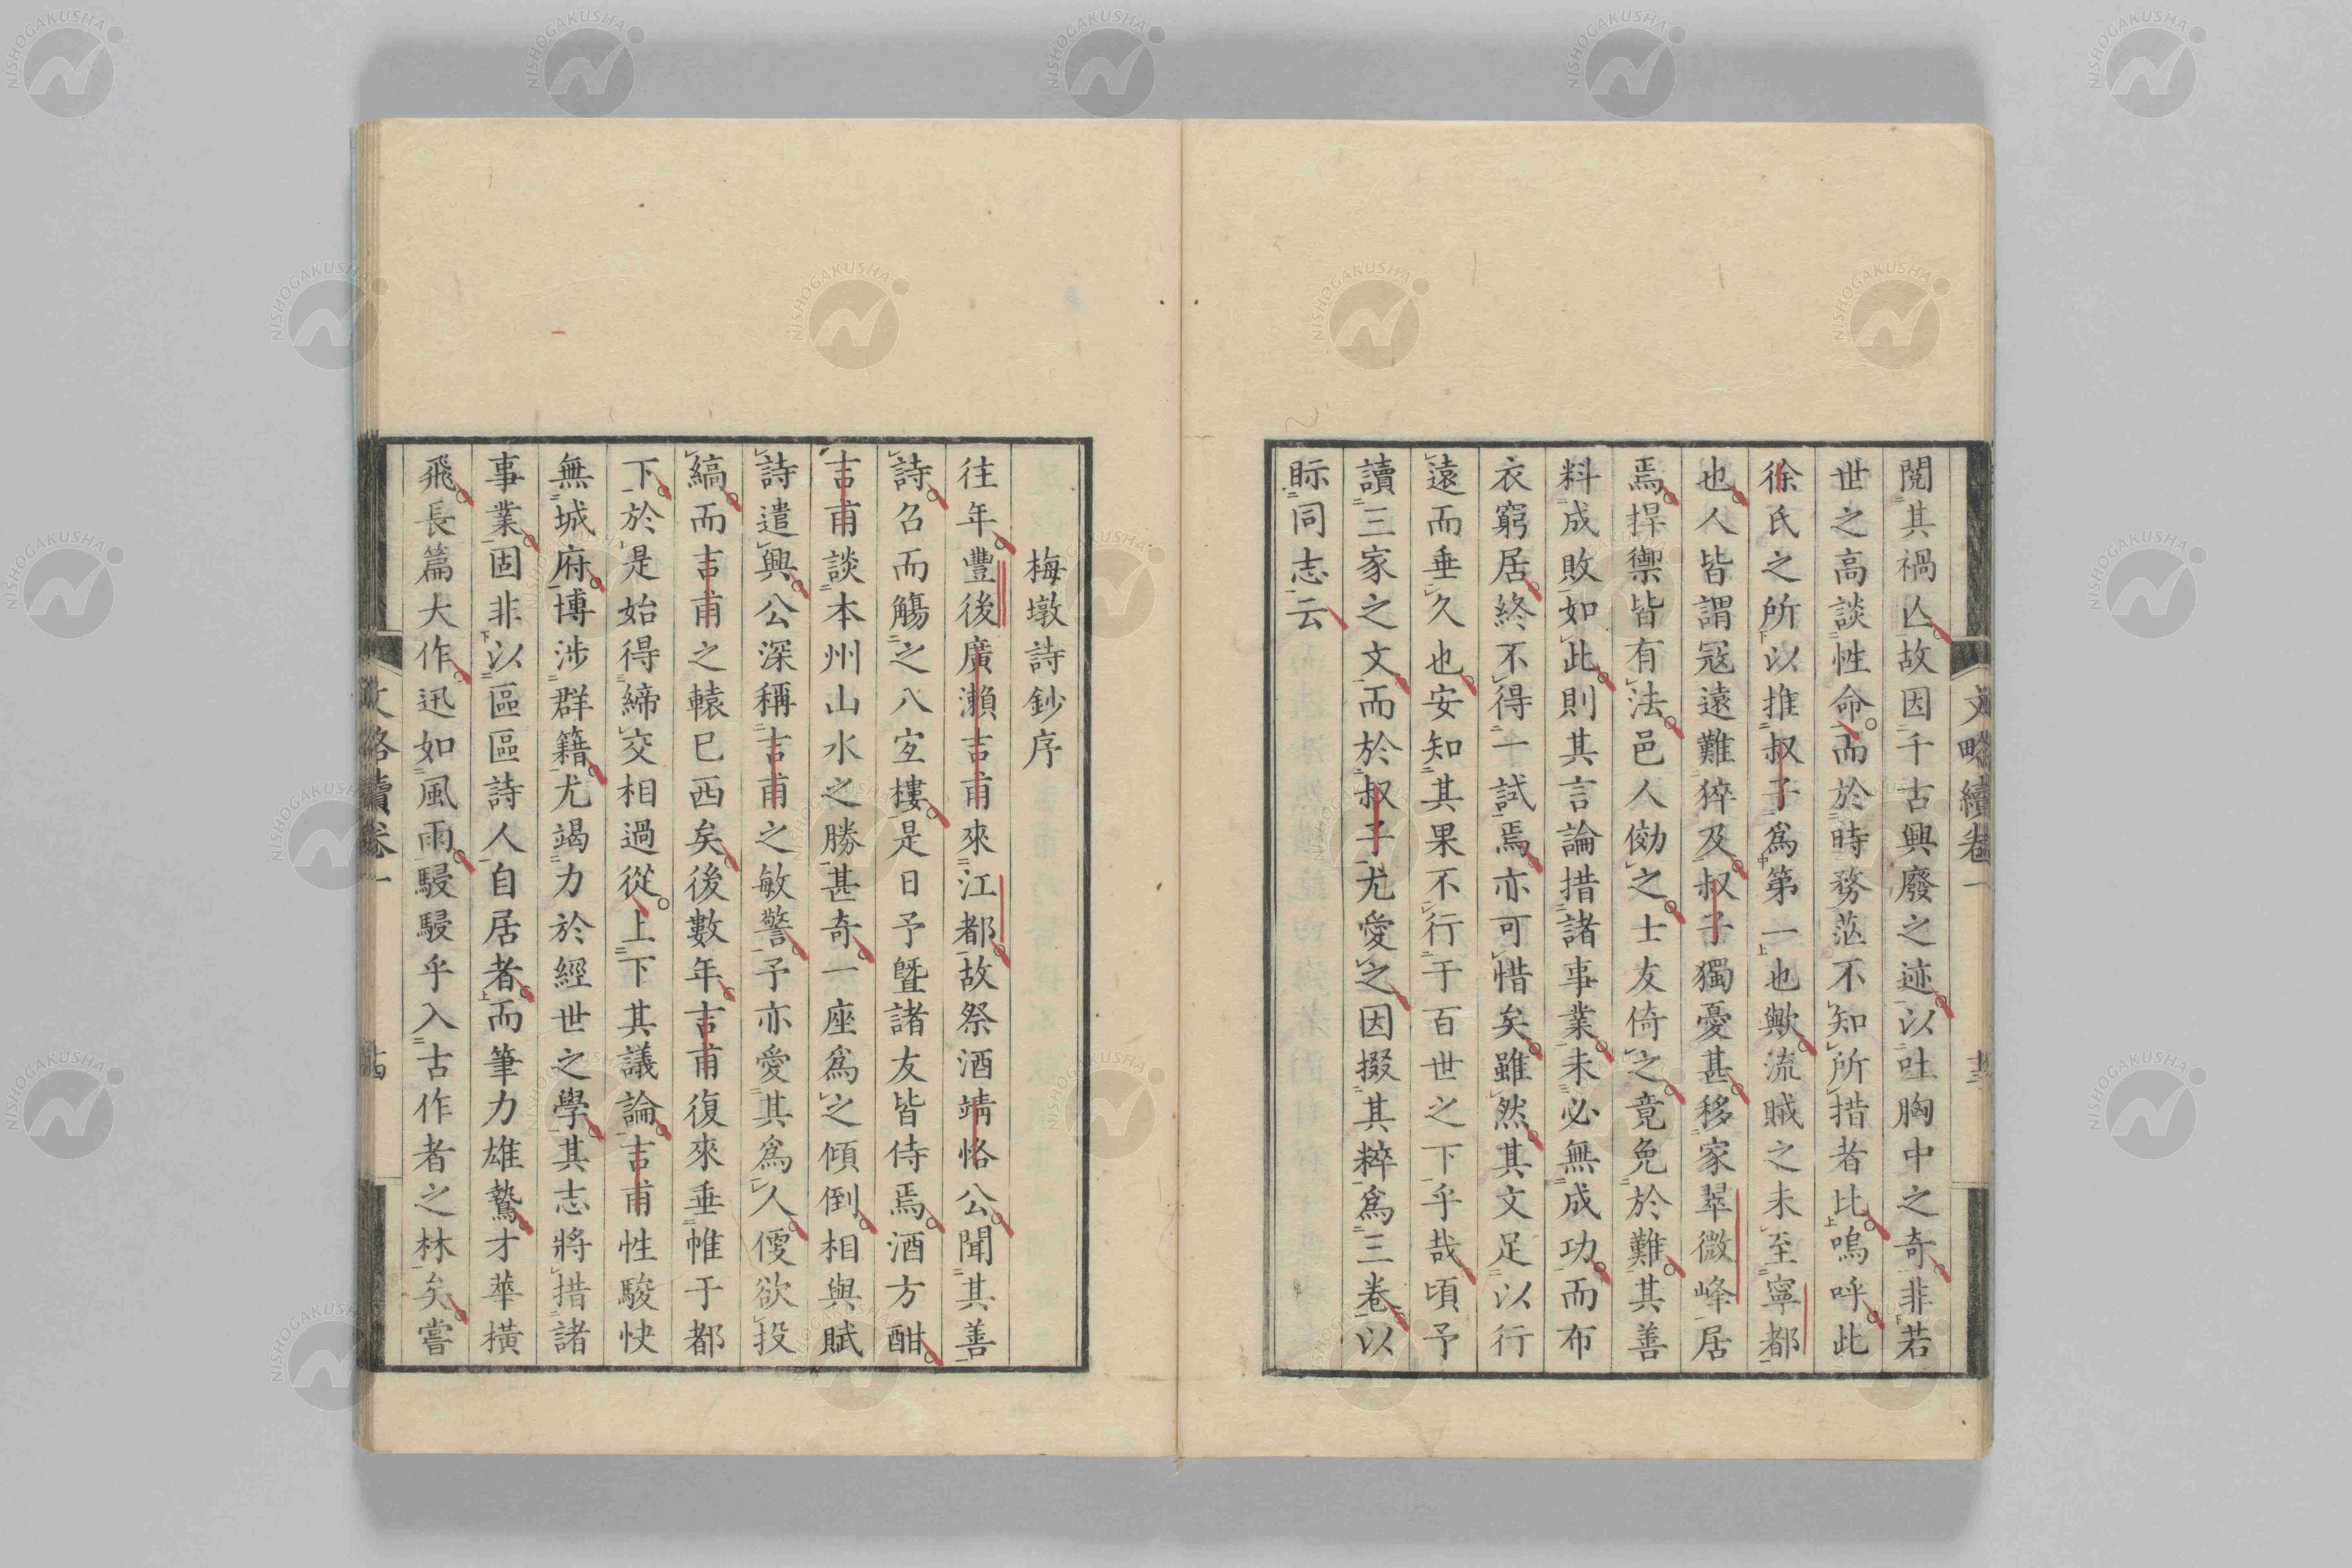 閲其禍亾故因千古興廢之迹以吐胸中之奇非若
世之高談性命而於時務茫不知所措者比嗚呼此
徐氏之所以推叔子爲第一也歟流賊之未至寧都
也人皆謂寇遠難猝及叔子獨憂甚移家翠微峰居
焉捍禦皆有法邑人効之士友倚之竟免於難其善
料成敗如此則其言論措諸事業未必無成功而布
衣窮居終不得一試焉亦可惜矣雖然其文足以行
遠而垂久也安知其果不行于百世之下乎哉頃予
讀三家之文而於叔子尤愛之因掇其粹爲三卷以
眎同志云
文略續卷一
十三
梅墩詩鈔序
往年豐後廣瀬吉甫來江都故祭酒靖恪公聞其善
詩召而觴之八宜樓是日予曁諸友皆侍焉酒方酣
吉甫談本州山水之勝甚奇一座爲之傾倒相與賦
詩遣興公深稱吉甫之敏警予亦愛其爲人優欲投
縞而吉甫之轅已西矣後數年吉甫復來垂帷于都
下於是始得締交相過從上下其議論吉甫性駿快
無城府博渉群籍尤竭力於經世之學其志將措諸
事業固非以區區詩人自居者而筆力雄鷙才華橫
飛長篇大作迅如風雨駸駸乎入古作者之林矣嘗
文略續卷一
十四
NISHOGAKUSHA